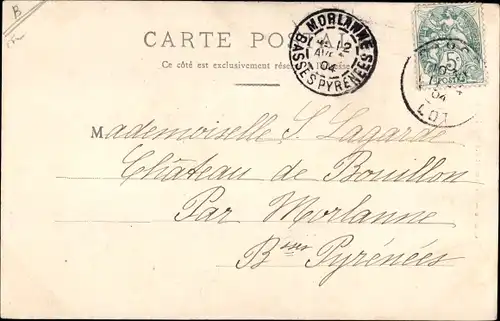 B
CARTE POSTALE
Ce côté est exclusivement réservé à l'adresse
MORLANNE
12
AVR
04
BASSES PYRÉNÉES
5
04
LOT
Mademoiselle S. Lagarde
Château de Bouillon
Par Morlanne
Bsses Pyrénées